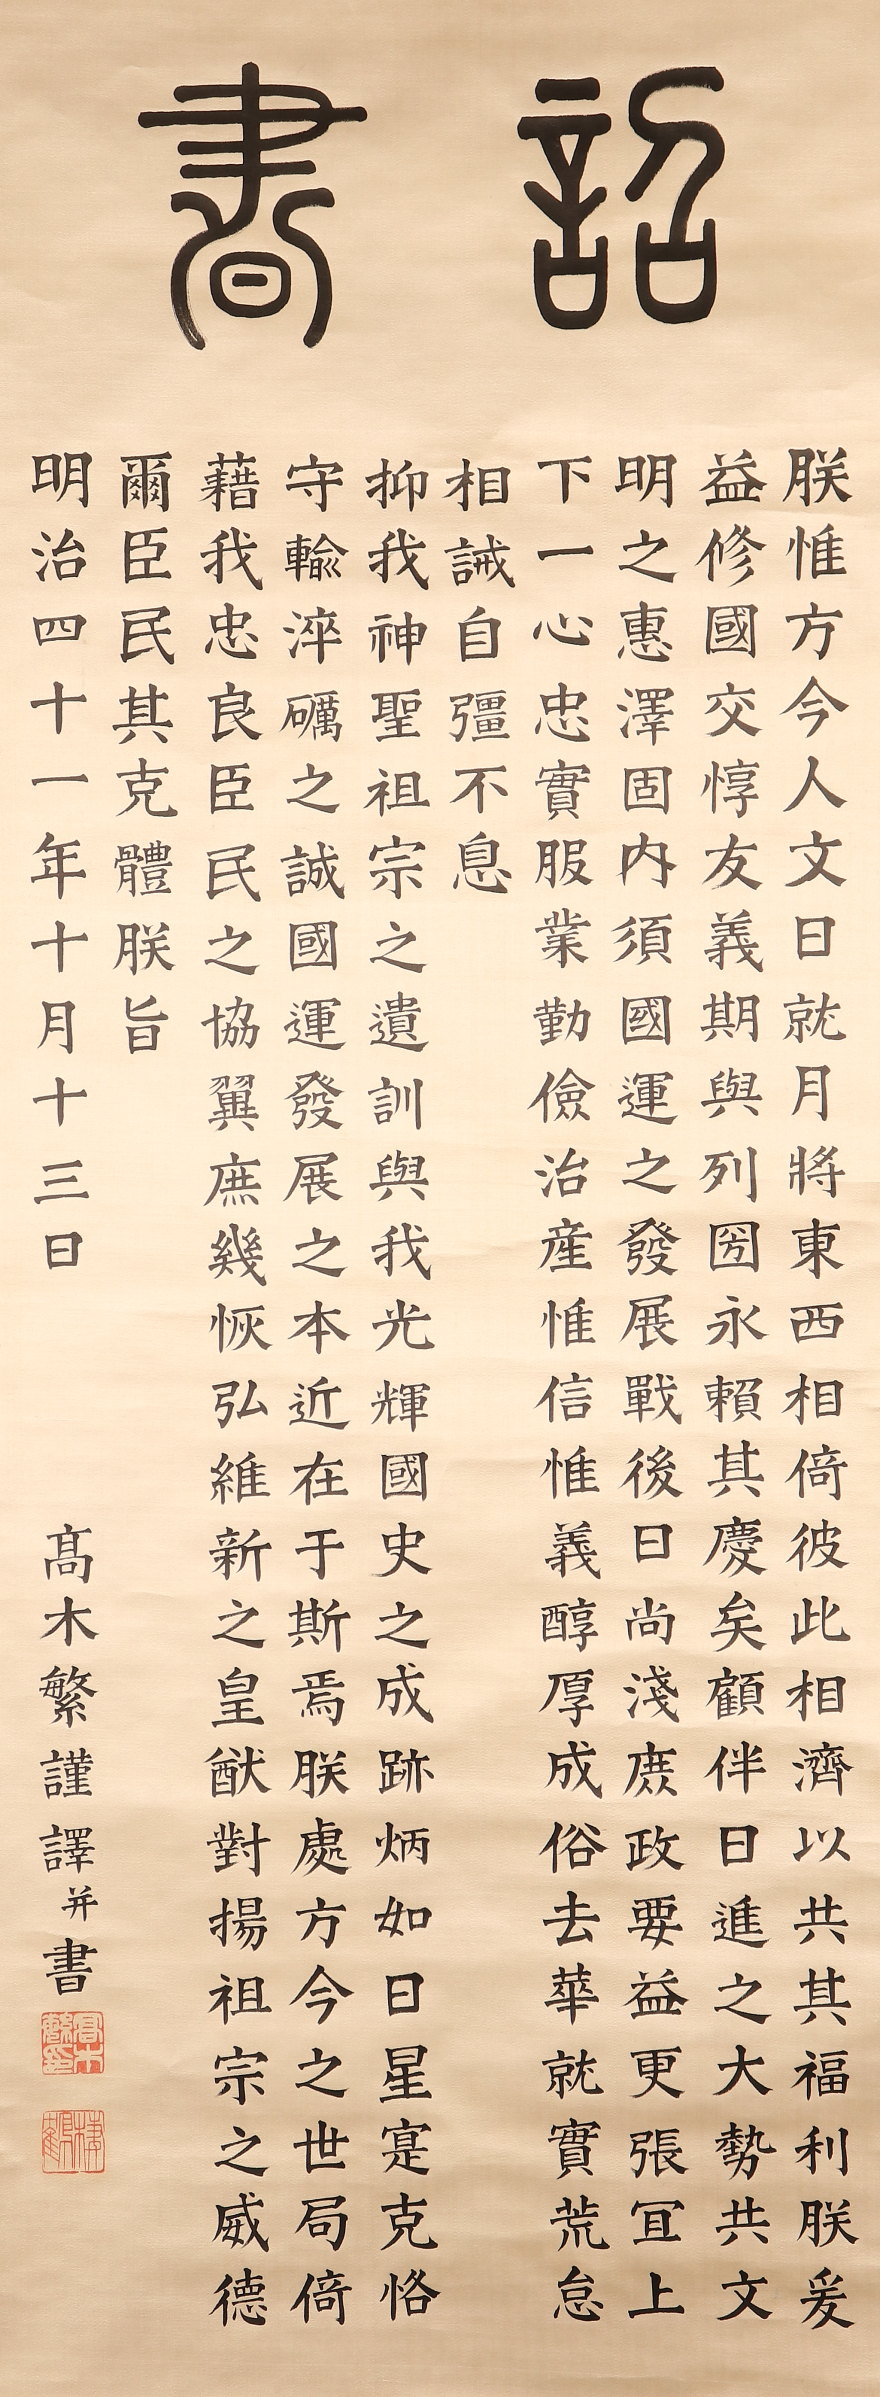 詔書
朕惟方今人文日就月將東西相倚彼此相濟以共其福利朕爰
益修國交惇友義期與列圀永賴其慶矣顧伴日進之大勢共文
明之惠澤固内須國運之發展戰後日尚淺庶政要益更張宜上
下一心忠實服業勤儉治産惟信惟義醇厚成俗去華就實荒怠
相誡自彊不息
抑我神聖祖宗之遺訓與我光輝國史之成跡炳如日星寔克恪
守輸淬礪之誠國運發展之本近在于斯焉朕處方今之世局倚
藉我忠良臣民之協翼庶幾恢弘維新之皇猷對揚祖宗之威德
爾臣民其克體朕旨
明治四十一年十月十三日
髙木繁謹譯并書